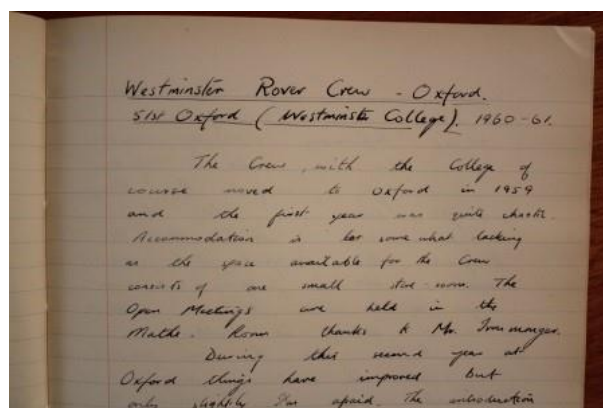 Westminster Rover Crew - Oxford.
51st Oxford (Westminster College). 1960-61.
The Crew, with the College of
course moved to Oxford in 1959
and the first year was quite chaotic.
Accommodation is somewhat lacking
as the space available for the Crew
consists of one small store room. The
Open Meetings are held in the
Maths. Room thanks to Mr. Ironmonger.
During this second year at
Oxford things have improved but
only slightly I'm afraid. The introduction